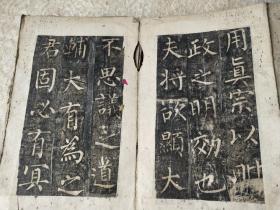 用眞宗以毗
政之明効也
夫將欲顯大
不思議之道
輔大有為之
君固必有冥